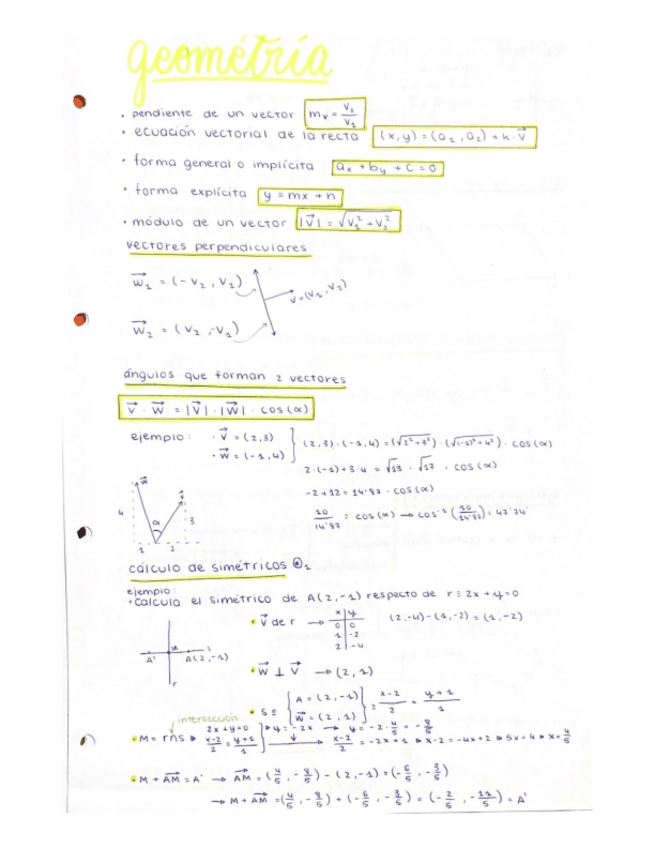 geométria
· pendiente de un vector m_v = V₂/V₁
· ecuación vectorial de la recta (x,y) = (a₁, a₂) + k·V⃗
· forma general o implícita ax + by + C = 0
· forma explícita y = mx + n
· módulo de un vector |V⃗| = √(V₁² + V₂²)
vectores perpendiculares
W⃗₁ = (-V₂, V₁)
V = (V₁, V₂)
W⃗₂ = (V₂, -V₁)
ángulos que forman 2 vectores
V⃗ · W⃗ = |V⃗| · |W⃗| · cos(α)
ejemplo: · V⃗ = (2,3)
· W⃗ = (-1,4)
(2,3)·(-1,4) = (√(2²+3²))·(√((-1)²+4²))· cos(α)
2·(-1)+3·4 = √13 · √17 · cos(α)
-2+12 = 14'87 · cos(α)
10/14'87 = cos(α) → cos⁻¹(10/14'87) = 47'74
W⃗ V⃗
4 α 3
1 2
cálculo de simétricos @₁
ejemplo:
· Calcula el simétrico de A(2,-1) respecto de r ≡ 2x + y = 0
• V⃗ de r → x y
0 0
1 -2
2 -4
(2,-4)-(1,-2) = (1,-2)
A' M A(2,-1) s
r
• W⃗ ⊥ V⃗ → (2,1)
• S ≡ { A = (2,-1) W⃗ = (2,1) } = x-2/2 = y+1/1
intersección
• M = r∩s ▸ 2x+y=0 x-2/2 = y+1/1 } ▸ y = -2x → y = -2·4/5 = -8/5
→ x-2/2 = -2x+1 ▸ x-2 = -4x+2 ▸ 5x = 4 ▸ x = 4/5
• M + AM⃗ = A' → AM⃗ = (4/5, -8/5) - (2,-1) = (-6/5, -3/5)
→ M + AM⃗ = (4/5, -8/5) + (-6/5, -3/5) = (-2/5, -11/5) = A'